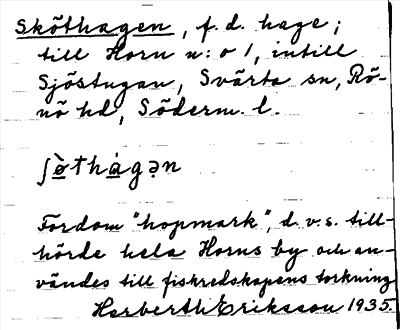 Sköthagen, f. d. hage;
till Horn n:o 1, intill
Sjöstugan, Svärta sn, Rö-
nö hd, Söderm. l.
ʃø̀thȧgən
Fordom "hopmark", d.v.s. till-
hörde hela Horns by och an-
vändes till fiskredskapens torkning
Herberth Eriksson 1935.